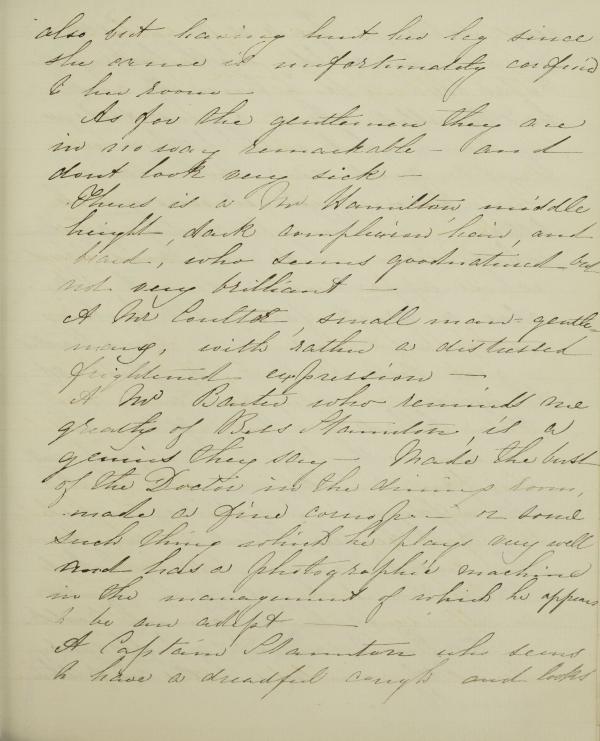 also but having hurt her leg since
she came is unfortunately confin'd
to her room —
As for the gentlemen they are
in no way remarkable — and
dont look very sick —
Theres is a Mr Hamilton, middle
height, dark complexion hair, and
beard, who seems goodnatured but
not very brilliant —
A Mr Coulter, small man = gentle =
many, with rather a distressed
frightened expression —
A Mr Baxter who reminds me
greatly of Staunton, is a
genius they say — Made the bust
of the Doctor in the dining room,
made a fine — or some
such thing which he plays very well
and has a photographic machine
in the management of which he appears
to be an adept —
A Captain Staunton who seems
to have a dreadful cough and looks